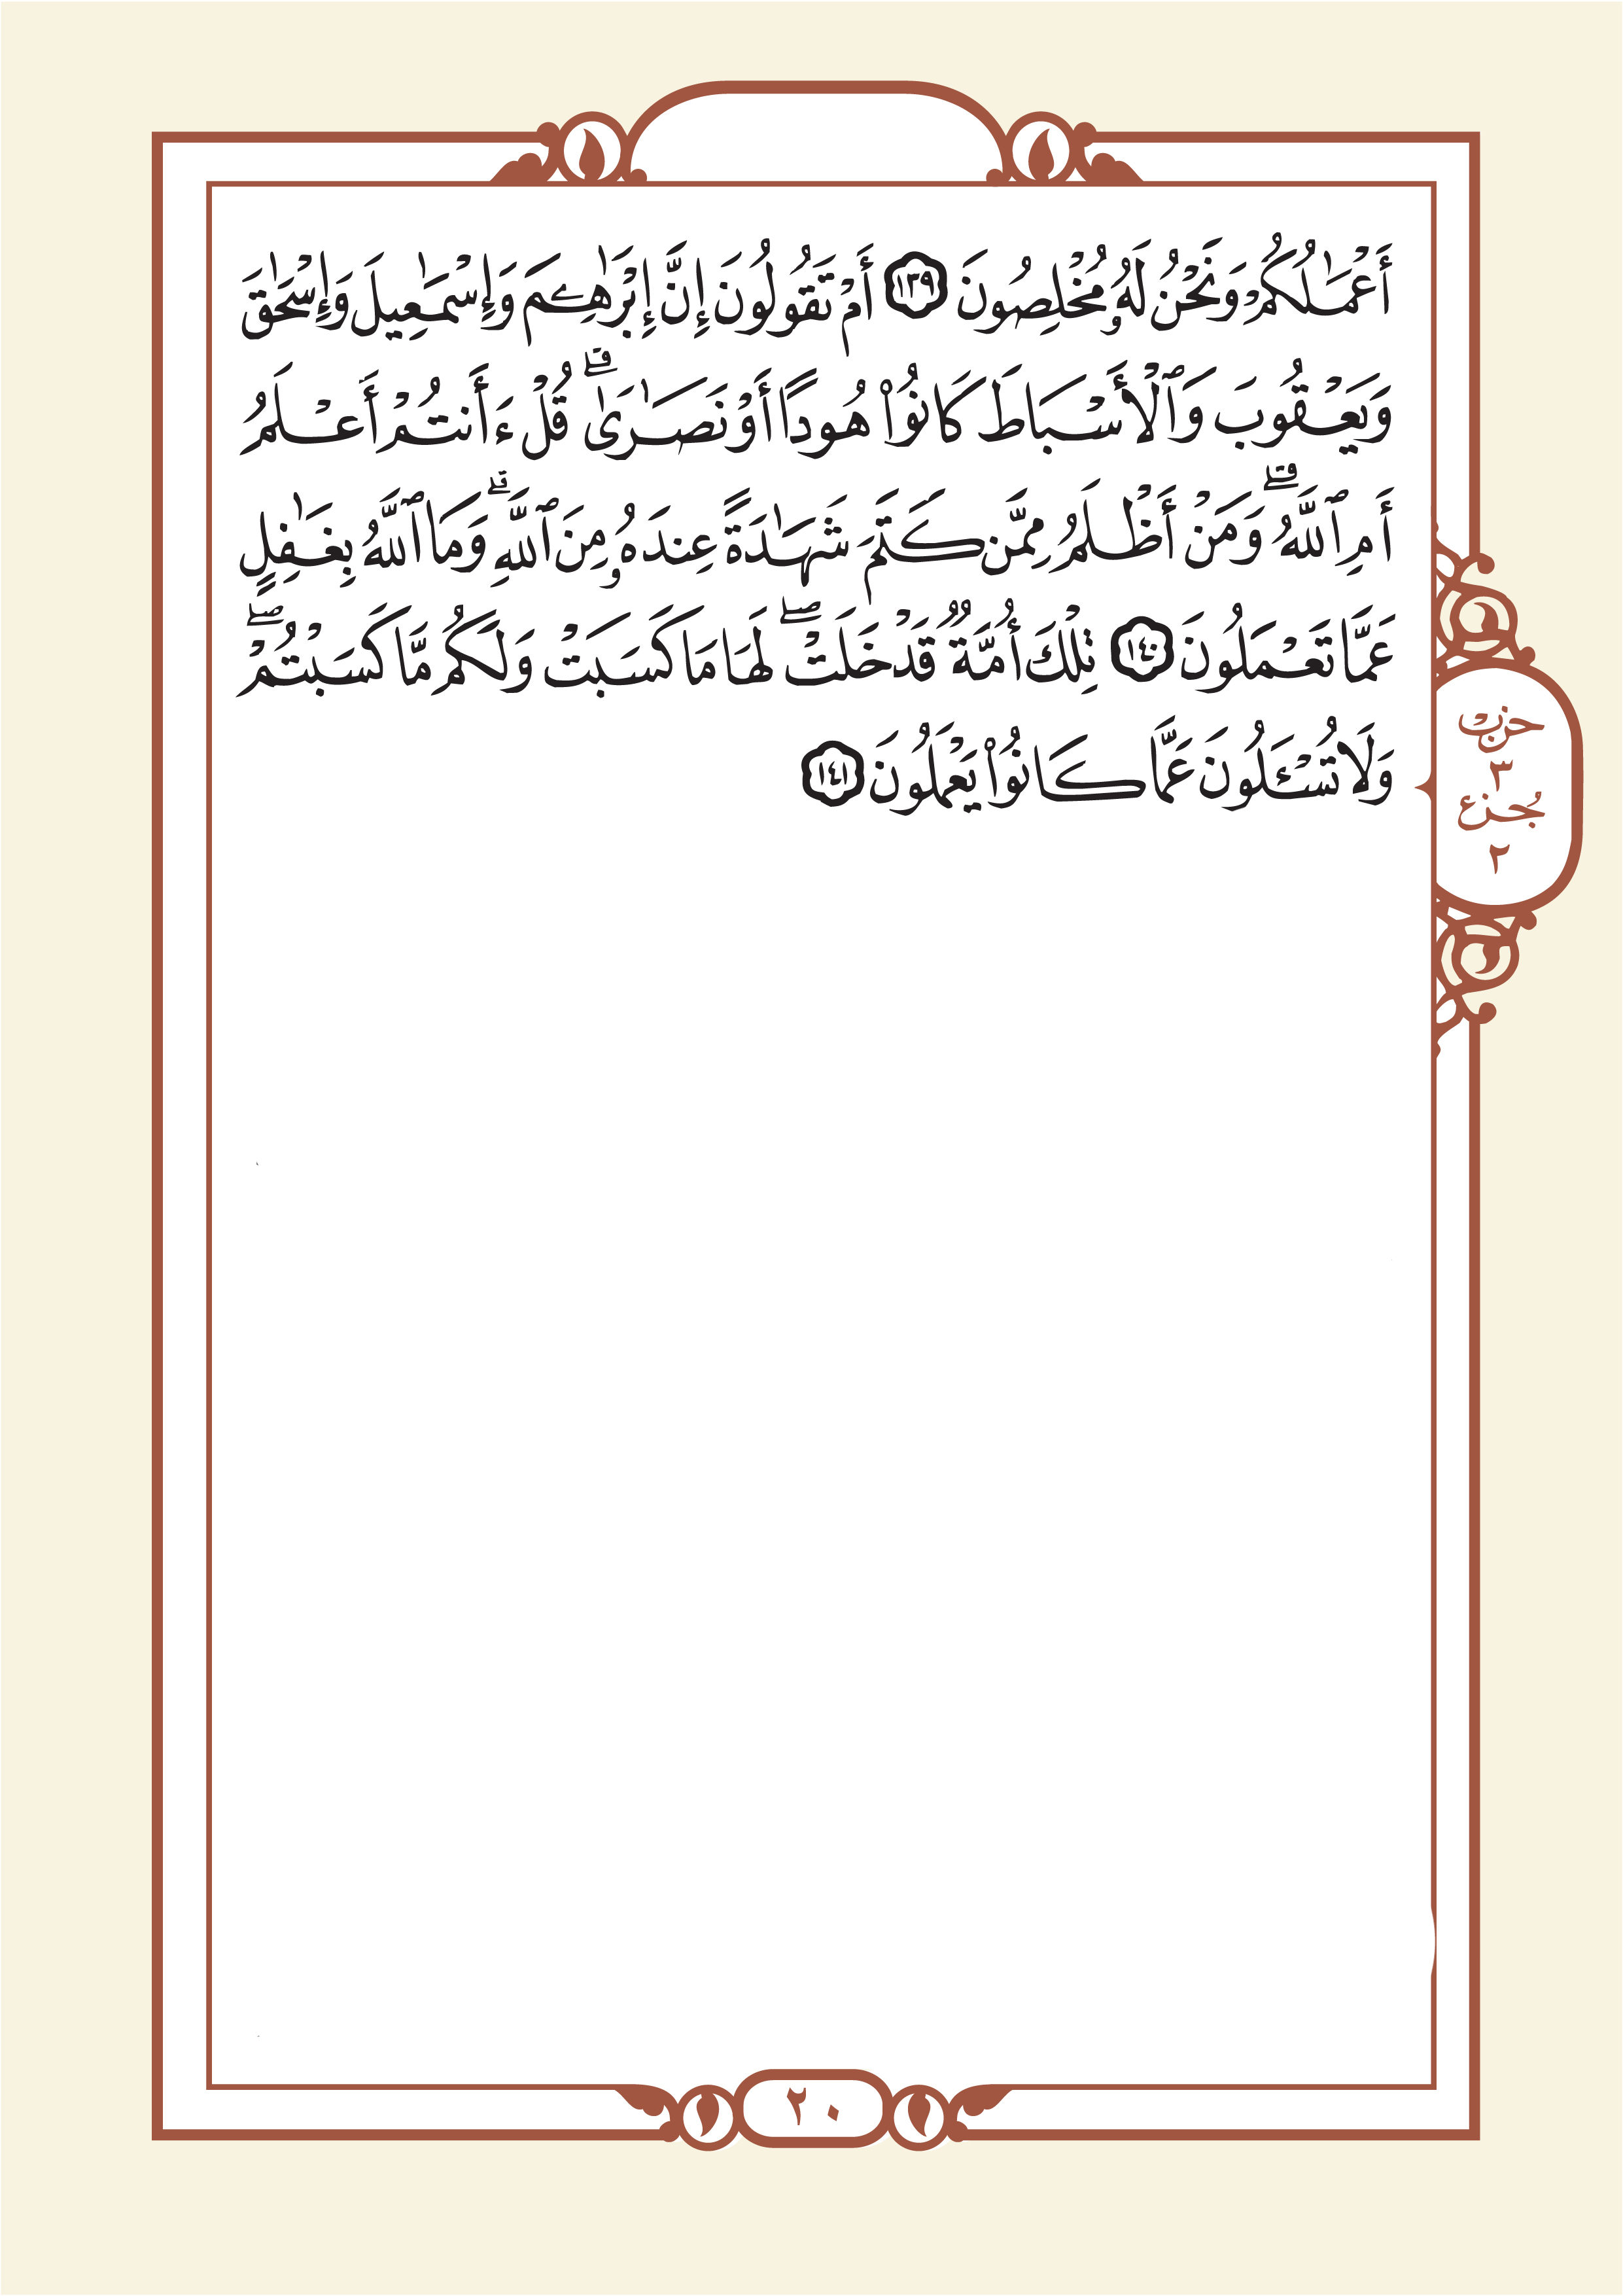 أَعْمَـٰلُكُمْ وَنَحْنُ لَهُۥ مُخْلِصُونَ ١٣٩ أَمْ تَقُولُونَ إِنَّ إِبْرَٰهِـۧمَ وَإِسْمَـٰعِيلَ وَإِسْحَـٰقَ
وَيَعْقُوبَ وَٱلْأَسْبَاطَ كَانُوا۟ هُودًا أَوْ نَصَـٰرَىٰ ۗ قُلْ ءَأَنتُمْ أَعْلَمُ
أَمِ ٱللَّهُ ۗ وَمَنْ أَظْلَمُ مِمَّن كَتَمَ شَهَـٰدَةً عِندَهُۥ مِنَ ٱللَّهِ ۗ وَمَا ٱللَّهُ بِغَـٰفِلٍ
عَمَّا تَعْمَلُونَ ١٤٠ تِلْكَ أُمَّةٌ قَدْ خَلَتْ ۖ لَهَا مَا كَسَبَتْ وَلَكُم مَّا كَسَبْتُمْ ۖ
وَلَا تُسْـَٔلُونَ عَمَّا كَانُوا۟ يَعْمَلُونَ ١٤١
حزب
٣
جُزء
٢
٢٠